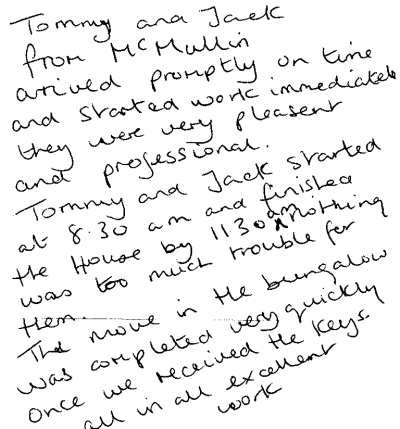 Tommy and Jack
from McMullin
arrived promptly on time
and started work immediately
they were very pleasent
and professional.
Tommy and Jack started
at 8.30 am and finished
the House by 11.30 am nothing
was too much trouble for
them.
The move in the bungalow
was completed very quickly
once we received the keys.
all in all excellent
work